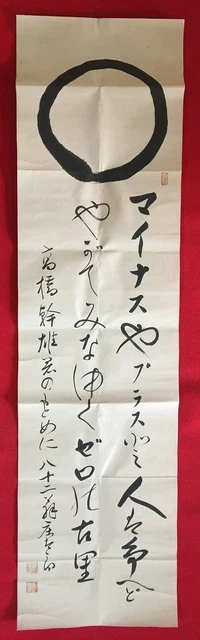 マイナスやプラス人は争へど
やがてみなゆくゼロの古里
高橋幹雄君のもとめに 八十二